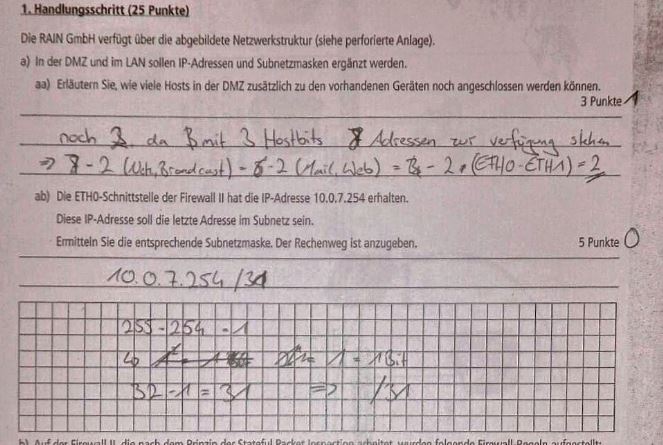 1. Handlungsschritt (25 Punkte)
Die RAIN GmbH verfügt über die abgebildete Netzwerkstruktur (siehe perforierte Anlage).
a) In der DMZ und im LAN sollen IP-Adressen und Subnetzmasken ergänzt werden.
aa) Erläutern Sie, wie viele Hosts in der DMZ zusätzlich zu den vorhandenen Geräten noch angeschlossen werden können.
3 Punkte 1
noch da mit 3 Hostbits 8 Adressen zur verfügung stehen
⇒ 8 - 2 (Netz, Broadcast) = 6 - 2 (Mail, Web) = - 2 (ETH0-ETH1) = 2
ab) Die ETH0-Schnittstelle der Firewall II hat die IP-Adresse 10.0.7.254 erhalten.
Diese IP-Adresse soll die letzte Adresse im Subnetz sein.
Ermitteln Sie die entsprechende Subnetzmaske. Der Rechenweg ist anzugeben.
5 Punkte 0
10.0.7.254 /31
255 - 254 = 1
1 = 1 Bit
32 - 1 = 31 ⇒ /31
b) Auf der Firewall II, die nach dem Prinzip der Stateful Packet Inspection arbeitet, wurden folgende Firewall-Regeln aufgestellt: